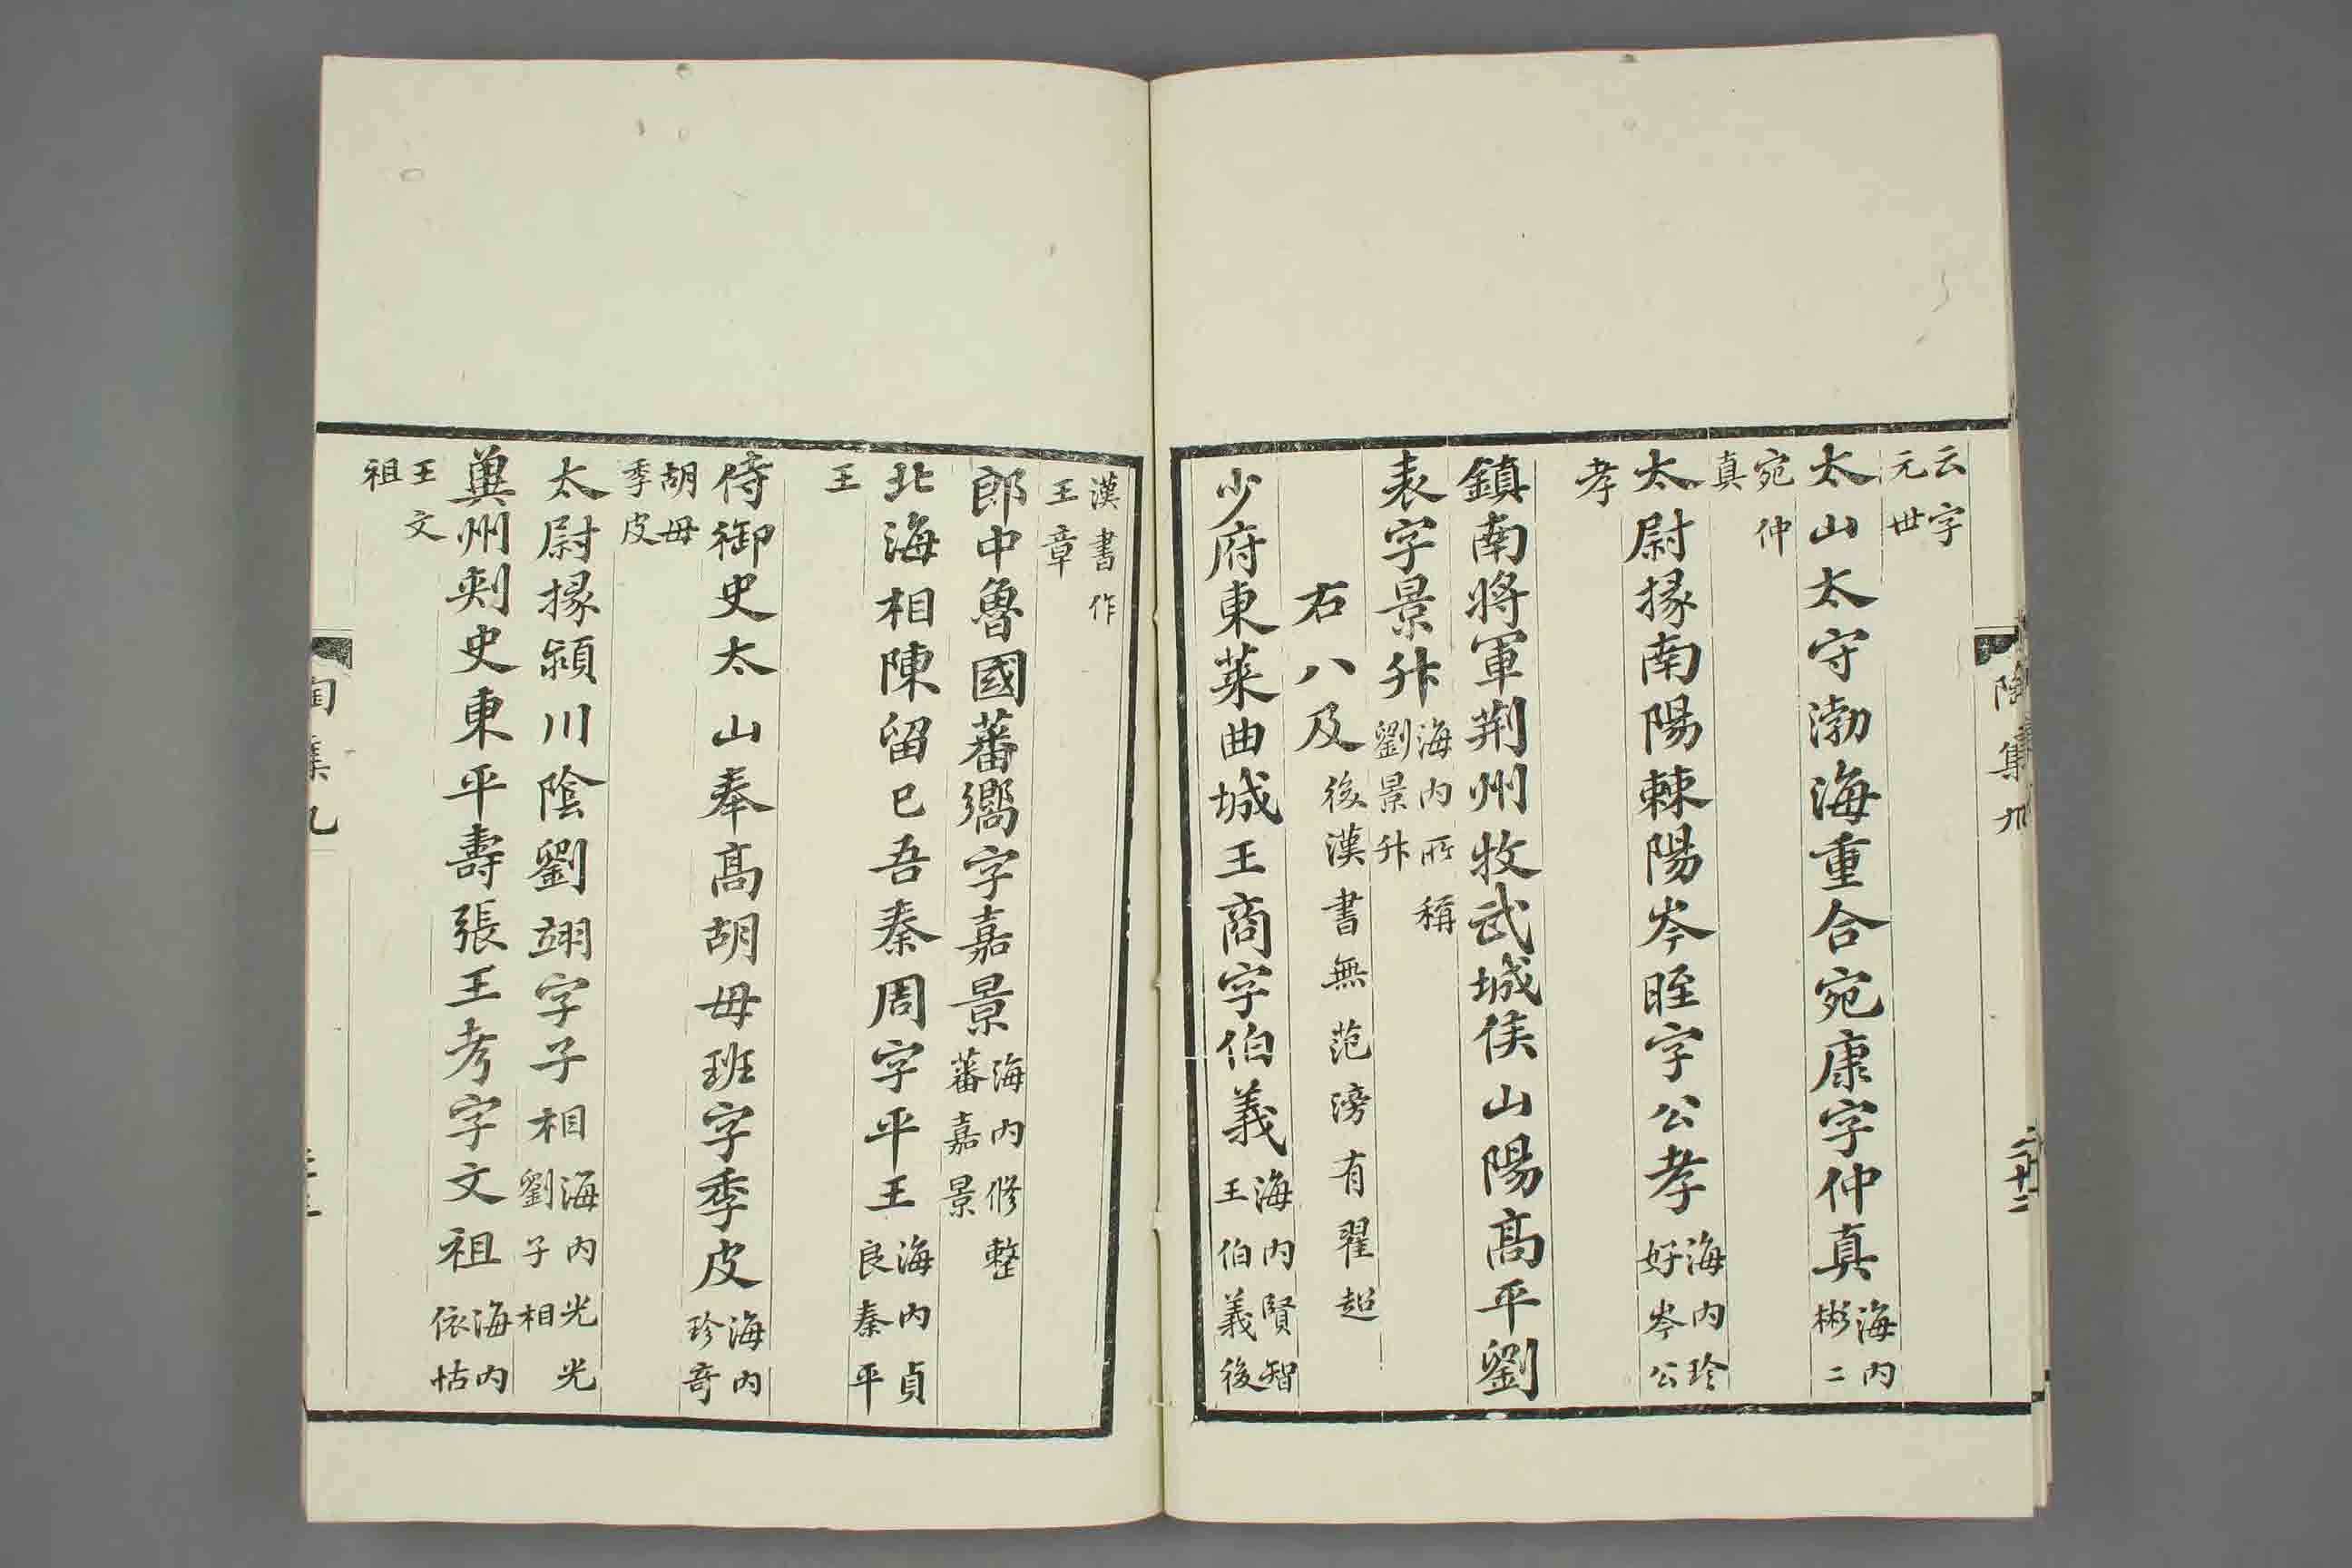 云字
元世
太山太守渤海重合宛康字仲真海内
彬二
宛仲
真
太尉掾南陽棘陽岑晊字公孝海内珍
好岑公
孝
鎮南將軍荆州牧武城侯山陽高平劉
表字景升海内所稱
劉景升
右八及後漢書無范滂有翟超
少府東萊曲城王商字伯義海内賢智
王伯義後
漢書作
王章
郎中魯國蕃嚮字嘉景海内修整
蕃嘉景
北海相陳留巳吾秦周字平王海内貞
良秦平
王
侍御史太山奉高胡毋班字季皮海内
珍奇
胡毋
季皮
太尉掾潁川陰劉翊字子相海内光光
劉子相
兾州刺史東平壽張王考字文祖海内
依怙
王文
祖
陶集九